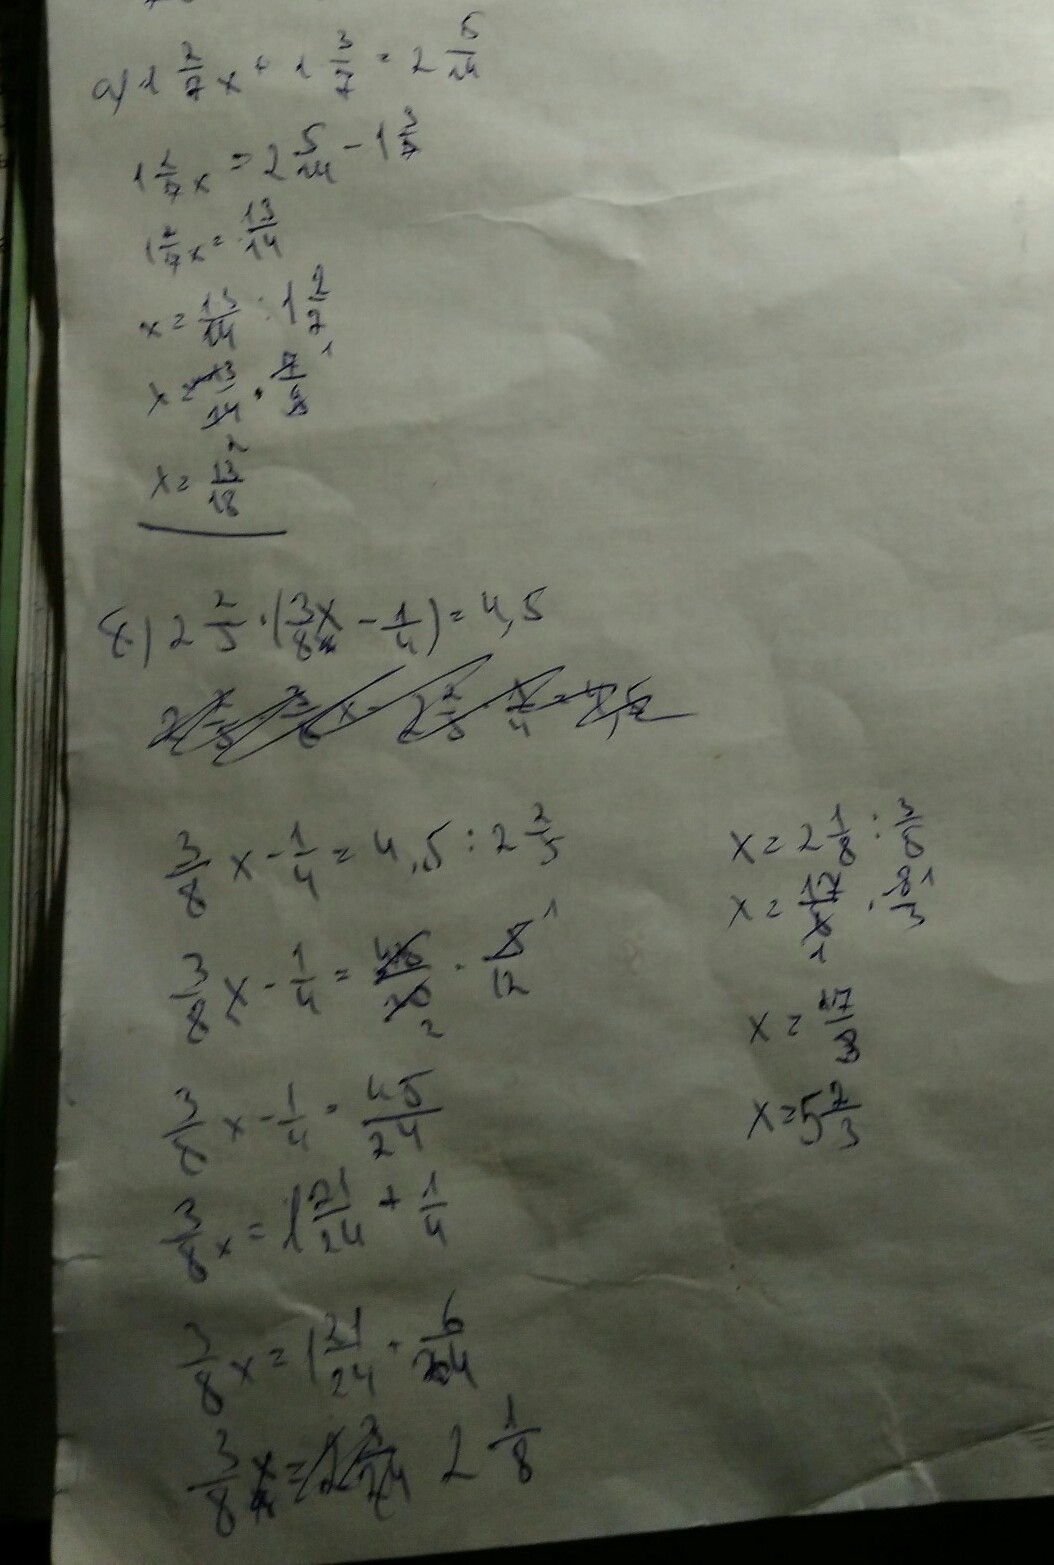 а) 1 2/7 x + 1 3/7 = 2 5/14
1 2/7 x = 2 5/14 - 1 3/7
1 2/7 x = 13/14
x = 13/14 : 1 2/7
x = 13/14 · 7/9
x = 13/18
б) 2 2/5 · (3/8 x - 1/4) = 4,5
3/8 x - 1/4 = 4,5 : 2 2/5
3/8 x - 1/4 = 45/10 · 5/12
3/8 x - 1/4 = 45/24
3/8 x = 1 21/24 + 1/4
3/8 x = 1 21/24 + 6/24
3/8 x = 2 1/8
x = 2 1/8 : 3/8
x = 17/8 · 8/3
x = 17/3
x = 5 2/3